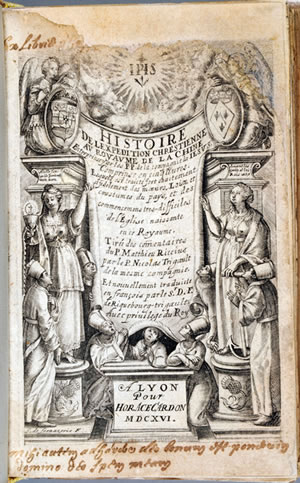 Ex Libris
IHS
HISTOIRE
DE L'EXPEDITION CHRESTIENNE
AV ROYAVME DE LA CHINE
Entreprise par les PP. de la compagnie de IESVS
Comprise en cinq liures
esquels est traicté fort exactement
et fidelement des mœurs, Loix, et
coustumes du pays, et des
commencemens tres-difficiles
de l'Eglise naissante
en ce Royaume.
Tirée des cõmentaires
du P. Matthieu Riccius
par le P. Nicolas Trigault
de la mesme compagnie.
Et nouuellement traduicte
en françois par le S.D.F.
de Riquebourg-trigault
Auec priuilege du Roy
A LYON
Pour
HORACE CARDON
MDCXVI.
mihi autem adhærere deo bonum est ponere in
domino deo spem meam